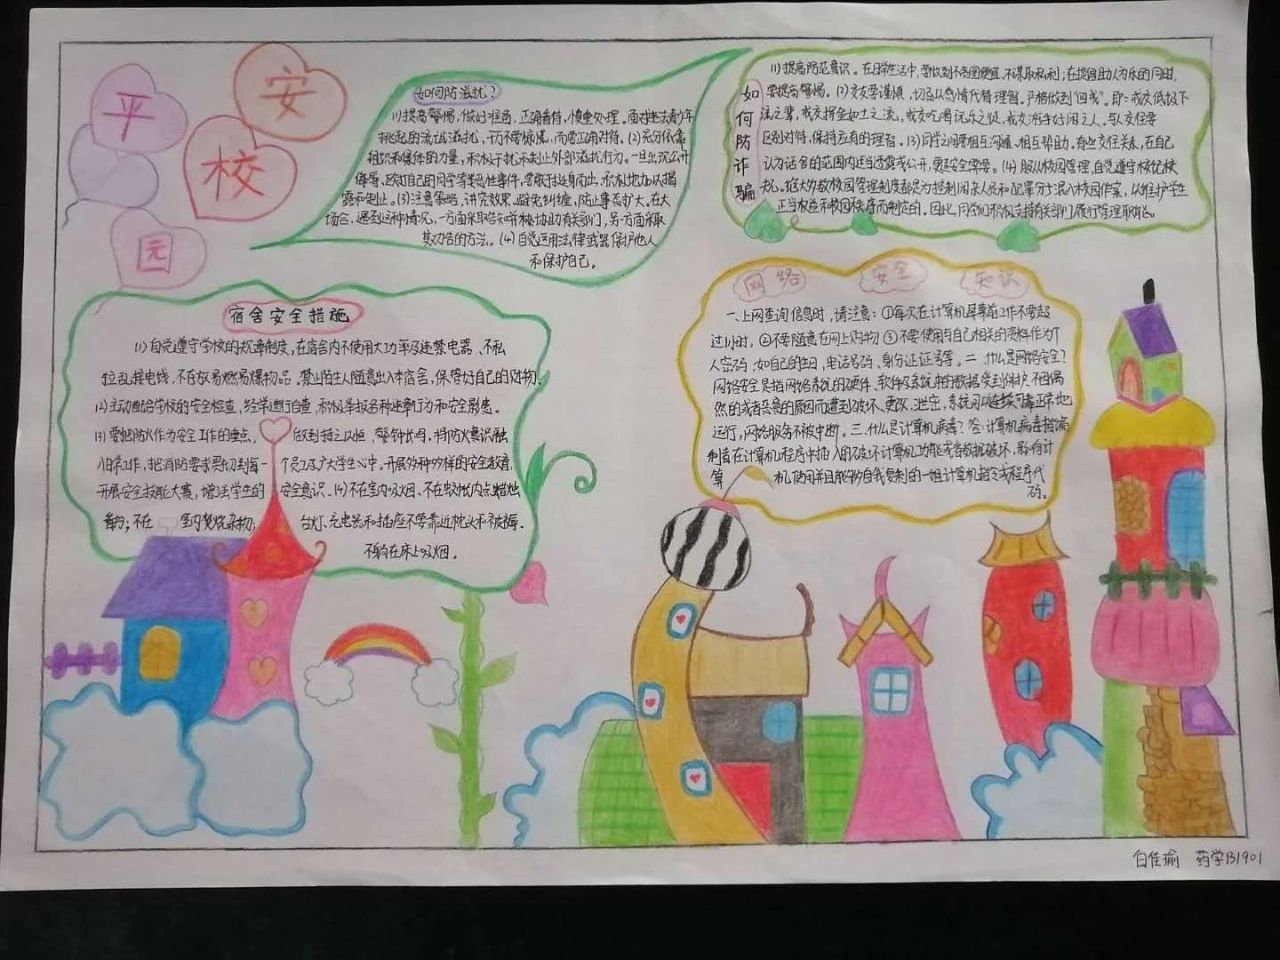 平
安
校
园
如何防滋扰?
(1)提高警惕,做好准备,正确看待,慎重处理。面对违法青少年
挑起的流氓滋扰,千万不要惊慌,而要正确对待。(2)充分依靠
组织和集体的力量,积极干预和制止外部滋扰行为。一旦出现公开
侮辱、殴打自己的同学等恶性事件,要敢于挺身而出,积极地加以揭
露和制止。(3)注意策略,讲究效果,避免纠缠,防止事态扩大。在大
场合,遇到这种情况,一方面采取告知学校协助有关部门,另一方面采取
其劝告的方法。(4)自觉运用法律武器保护他人
和保护自己。
如何防诈骗
(1)提高防范意识。在日常生活中,要做到不贪图便宜,不谋取私利;在提倡助人为乐的同时,
要提高警惕。(2)交友要谨慎,切忌以感情代替理智。严格做到"四戒",即:戒交低级下
流之辈,戒交挥金如土之流,戒交吃喝玩乐之徒,戒交游手好闲之人。与人交往要
区别对待,保持应有的理智。(3)同学之间要相互沟通、相互帮助。有些交往关系,在自己
认为适合的范围内适当透露或公开,更适合安全需要。(4)服从校园管理,自觉遵守校纪校
规。绝大多数校园管理制度都是为控制闲杂人员和犯罪分子混入校园作案,以维护学生
正当权益和校园秩序而制定的。因此,同学们积极支持有关部门履行管理职能。
宿舍安全措施
(1)自觉遵守学校的规章制度,在宿舍内不使用大功率及违禁电器、不私
拉乱接电线,不存放易燃易爆物品,禁止陌生人随意出入本宿舍,保管好自己的财物。
(2)主动配合学校的安全检查,经常进行自查,积极举报各种违章行为和安全隐患。
(3)要把防火作为安全工作的重点,做到持之以恒,警钟长鸣。将防火意识融
入日常工作,把消防要求贯彻到每一个员工及广大学生心中。开展多种多样的安全教育,
开展安全技能大赛,增强学生的安全意识。(4)不在室内吸烟、不在蚊帐内点蜡烛
看书;不在室内焚烧杂物;台灯、充电器和插座不要靠近枕头和被褥、
不躺在床上吸烟。
网络安全知识
一、上网查询信息时,请注意:①每次在计算机屏幕前工作不要超
过1小时,②不要随意在网上购物③不要使用与自己相关的资料作为个
人密码,如自己的生日,电话号码、身份证证号等。二、什么是网络安全?
网络安全是指网络系统的硬件、软件及系统中的数据受到保护,不因偶
然的或者恶意的原因而遭到破坏、更改、泄密,系统可以连续可靠正常地
运行,网络服务不被中断。三、什么是计算机病毒?答:计算机病毒指编
制者在计算机程序中插入的破坏计算机功能或者数据破坏,影响计
算机使用并且能够自我复制的一组计算机指令或程序代
码。
白佳瑜 药学B1901